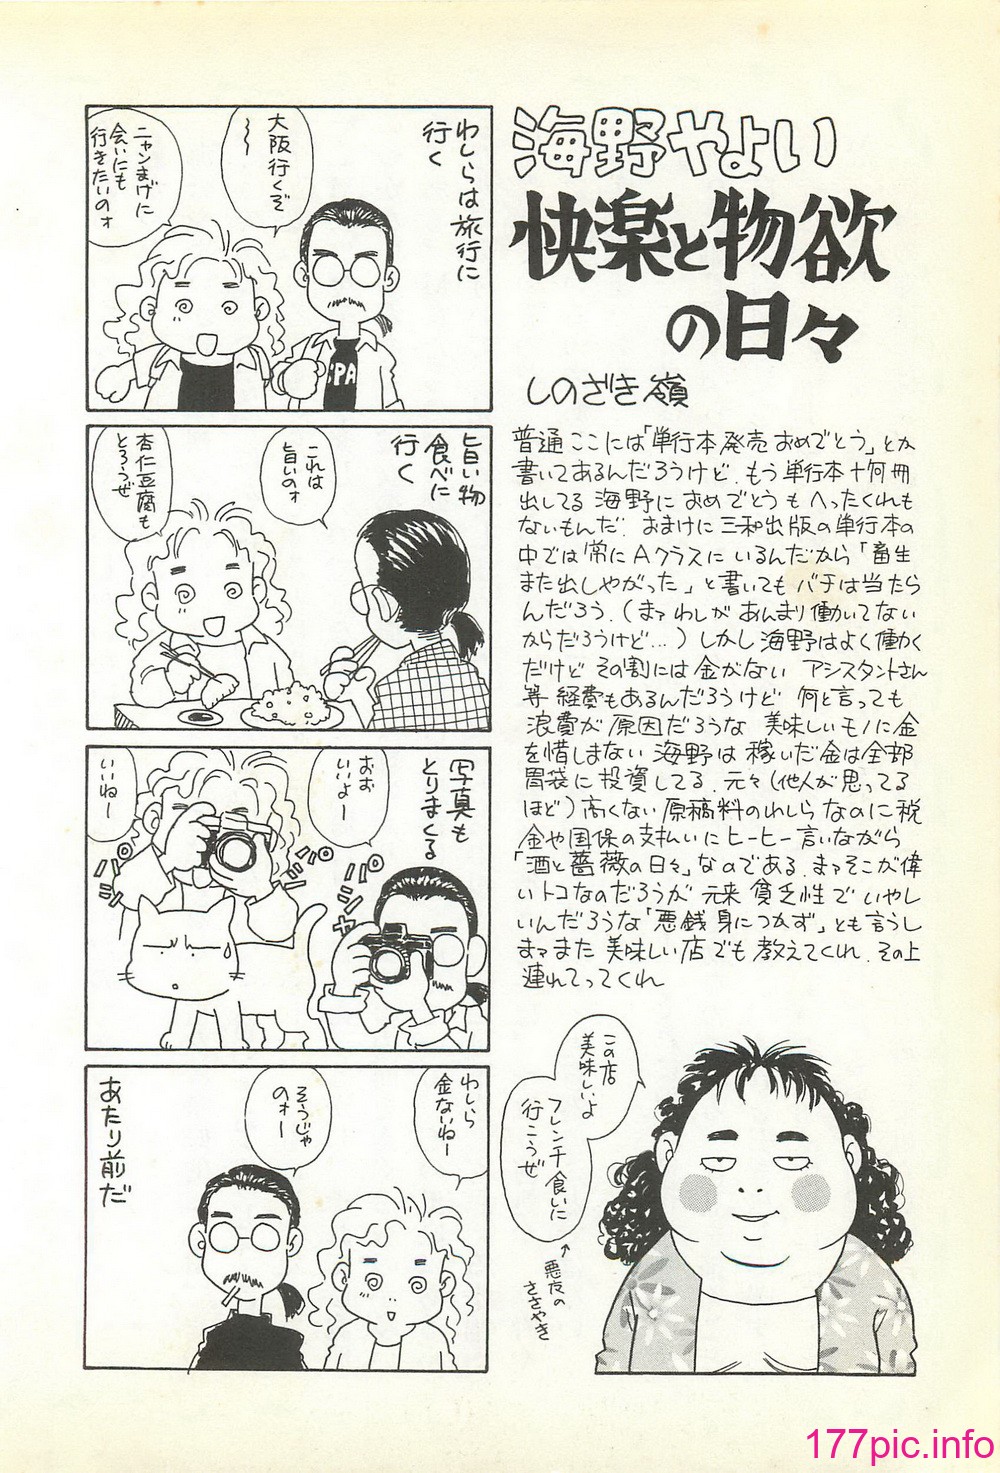 海野やよい
快楽と物欲
の日々
しのざき嶺
普通ここには「単行本発売おめでとう」とか
書いてあるんだろうけど、もう単行本十何冊
出してる海野におめでとうもへったくれも
ないもんだ。おまけに三和出版の単行本の
中では常にAクラスにいるんだから「畜生
また出しやがった」と書いてもバチは当たら
んだろう。(まァわしがあんまり働いてない
からだろうけど…)しかし海野はよく働く
だけどその割には金がない アシスタントさん
等 経費もあるんだろうけど 何と言っても
浪費が原因だろうな 美味しいモノに金
を惜しまない海野は稼いだ金は全部
胃袋に投資してる。元々(他人が思ってる
ほど)高くない原稿料のわしらなのに税
金や国保の支払いにヒーヒー言いながら
「酒と薔薇の日々」なのである。まァそこが偉
いトコなのだろうが 元来貧乏性でいやし
いんだろうな「悪銭身につかず」とも言うし
まァまた美味しい店でも教えてくれ。その上
連れてってくれ
わしらは旅行に
行く
大阪行くぞ
〜
ニャンまげに
会いにも
行きたいのォ
旨い物
食べに
行く
これは
旨いのォ
杏仁豆腐も
とろうぜ
写真も
とりまくる
おお
いいよー
いいねー
パシャ
パシャ
パシャ
わしら
金ないねー
そうじゃ
のォー
あたり前だ
この店
美味しいよ
フレンチ食いに
行こうぜ
↑
悪友の
ささやき
PA
177pic.info